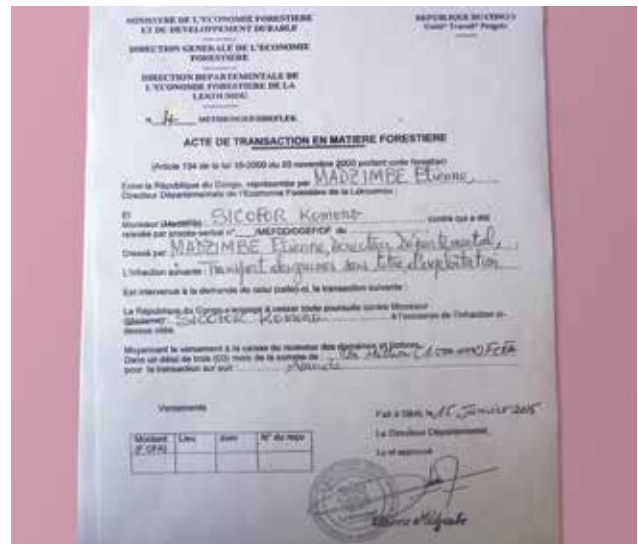 MINISTERE DE L'ECONOMIE FORESTIERE
ET DU DEVELOPPEMENT DURABLE
REPUBLIQUE DU CONGO
Unité* Travail* Progrès
DIRECTION GENERALE DE L'ECONOMIE
FORESTIERE
DIRECTION DEPARTEMENTALE DE
L'ECONOMIE FORESTIERE DE LA
LEKOUMOU
ACTE DE TRANSACTION EN MATIERE FORESTIERE
(Article 134 de la loi 16-2000 du 20 novembre 2000 portant code forestier)
Entre la République du Congo, représentée par MADZIMBE Etienne,
Directeur Départementale de l'Economie Forestière de la Lékoumou ;
Et
Monsieur SICOFOR Komono contre qui a été
relevée par procès-verbal n° /MEFDD/DGEF/CF du
Dressé par MADZIMBE Etienne, Directeur Départemental,
L'infraction suivante Transport des grumes sans titre d'exploitation
Est intervenue à la demande de celui (celle)-ci, la transaction suivante :
La République du Congo s'engage à cesser toute poursuite contre Monsieur
SICOFOR Komono à l'occasion de l'infraction ci-
dessus citée.
Moyennant le versement à la caisse du receveur des domaines et
Dans un délai de trois (03) mois de la somme de Million FCFA
pour la transaction qui suit :
Versements
Fait à Sibiti, le 15 Janvier 2015
Le Directeur Départemental,
Lu et approuvé
Montant Lieu date N° du reçu
(F CFA)